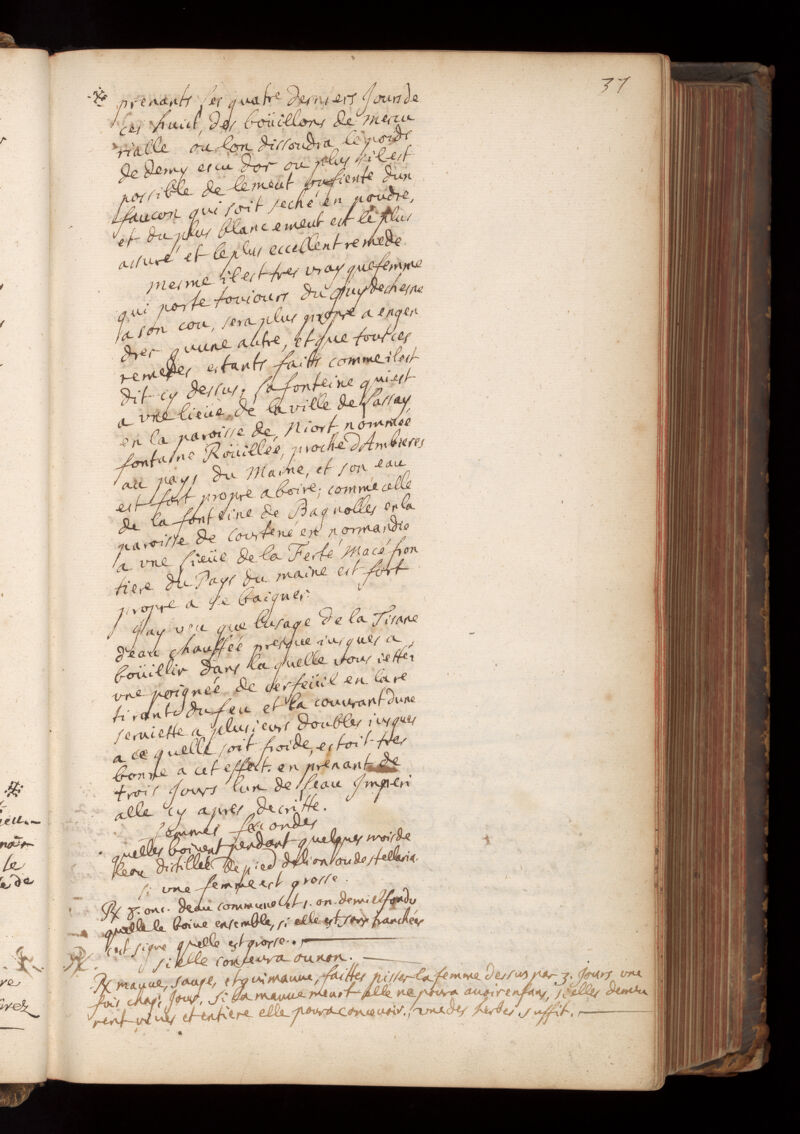 37
prenants les quatre derniers Jours de
ces huict, des boüillons de mercu
rialle ou lon dissoudra le poids
de demy escu dor ou plus sil est
possible de lemeut ou fiente dun
faucon qui soit seché en poudre,
et du plus blanc ement est le plus
assuré et le plus eccellent remede.
mesme il est tres vray que femme
qui porte toujours du guy de chesne
a son cou, sera plus propre a engen
drer quune autre, et que tout ces
remedes estants faitts comme il est
dit cy dessus. La fonteine qui est
a vne lieüe de la ville de Lassay
en la paroisse de Niort nommée
fontaine Roüillée, proche dAmbrieres
au pays du Maine, et son eau
est fort propre a boire; comme celle
de la fonteine de Bagnolles en la
paroisse de Couterné en normandie
a vne lieüe de la Ferté Macé fron
tiere du Pays du maine est fort
propre a se baigner.
Jay veu que lusage de la Tisane
deau chauffée presque jusques a
boüillir dans laquelle vous jettez
vne poignée de cerfeüil en la re
tirant du feu et la couvrant dune
serviette a plusieurs doubles jusques
a ce quelle soit froide, estoit tres
bonne a cet effect. en prenant de
trois Jours lun de leau Imperi
alle cy apres decritte.
femmes fecondes
quelles boivent pendant quelques mois de
leau distillée de pied de lion ou de stellaria.
si vne femme est grosse.
℞ 8. onc. deau commune et 1. on. de miel fondu
quelle le boive ensemble, si elle est sans tranchées
cest signe quelle est grosse.
si elle concevra ou non.
℞ mauve, sauge, et guimauve, faittes pisser la femme dessus par 3. Jours une
fois chaq. Jour. si la mauve meurt elle ne poura avoir enfans, si elles demeu
rent vertes et entiere elle poura concevoir. vne des herbes suffit.